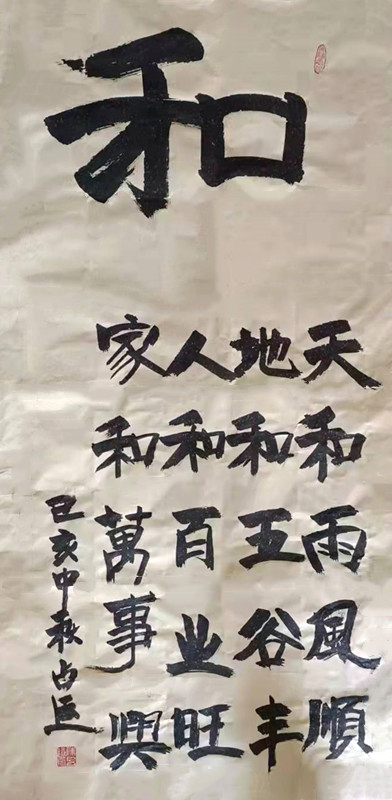 和
天和雨風順
地和五谷丰
人和百业旺
家和萬事興
己亥中秋占运